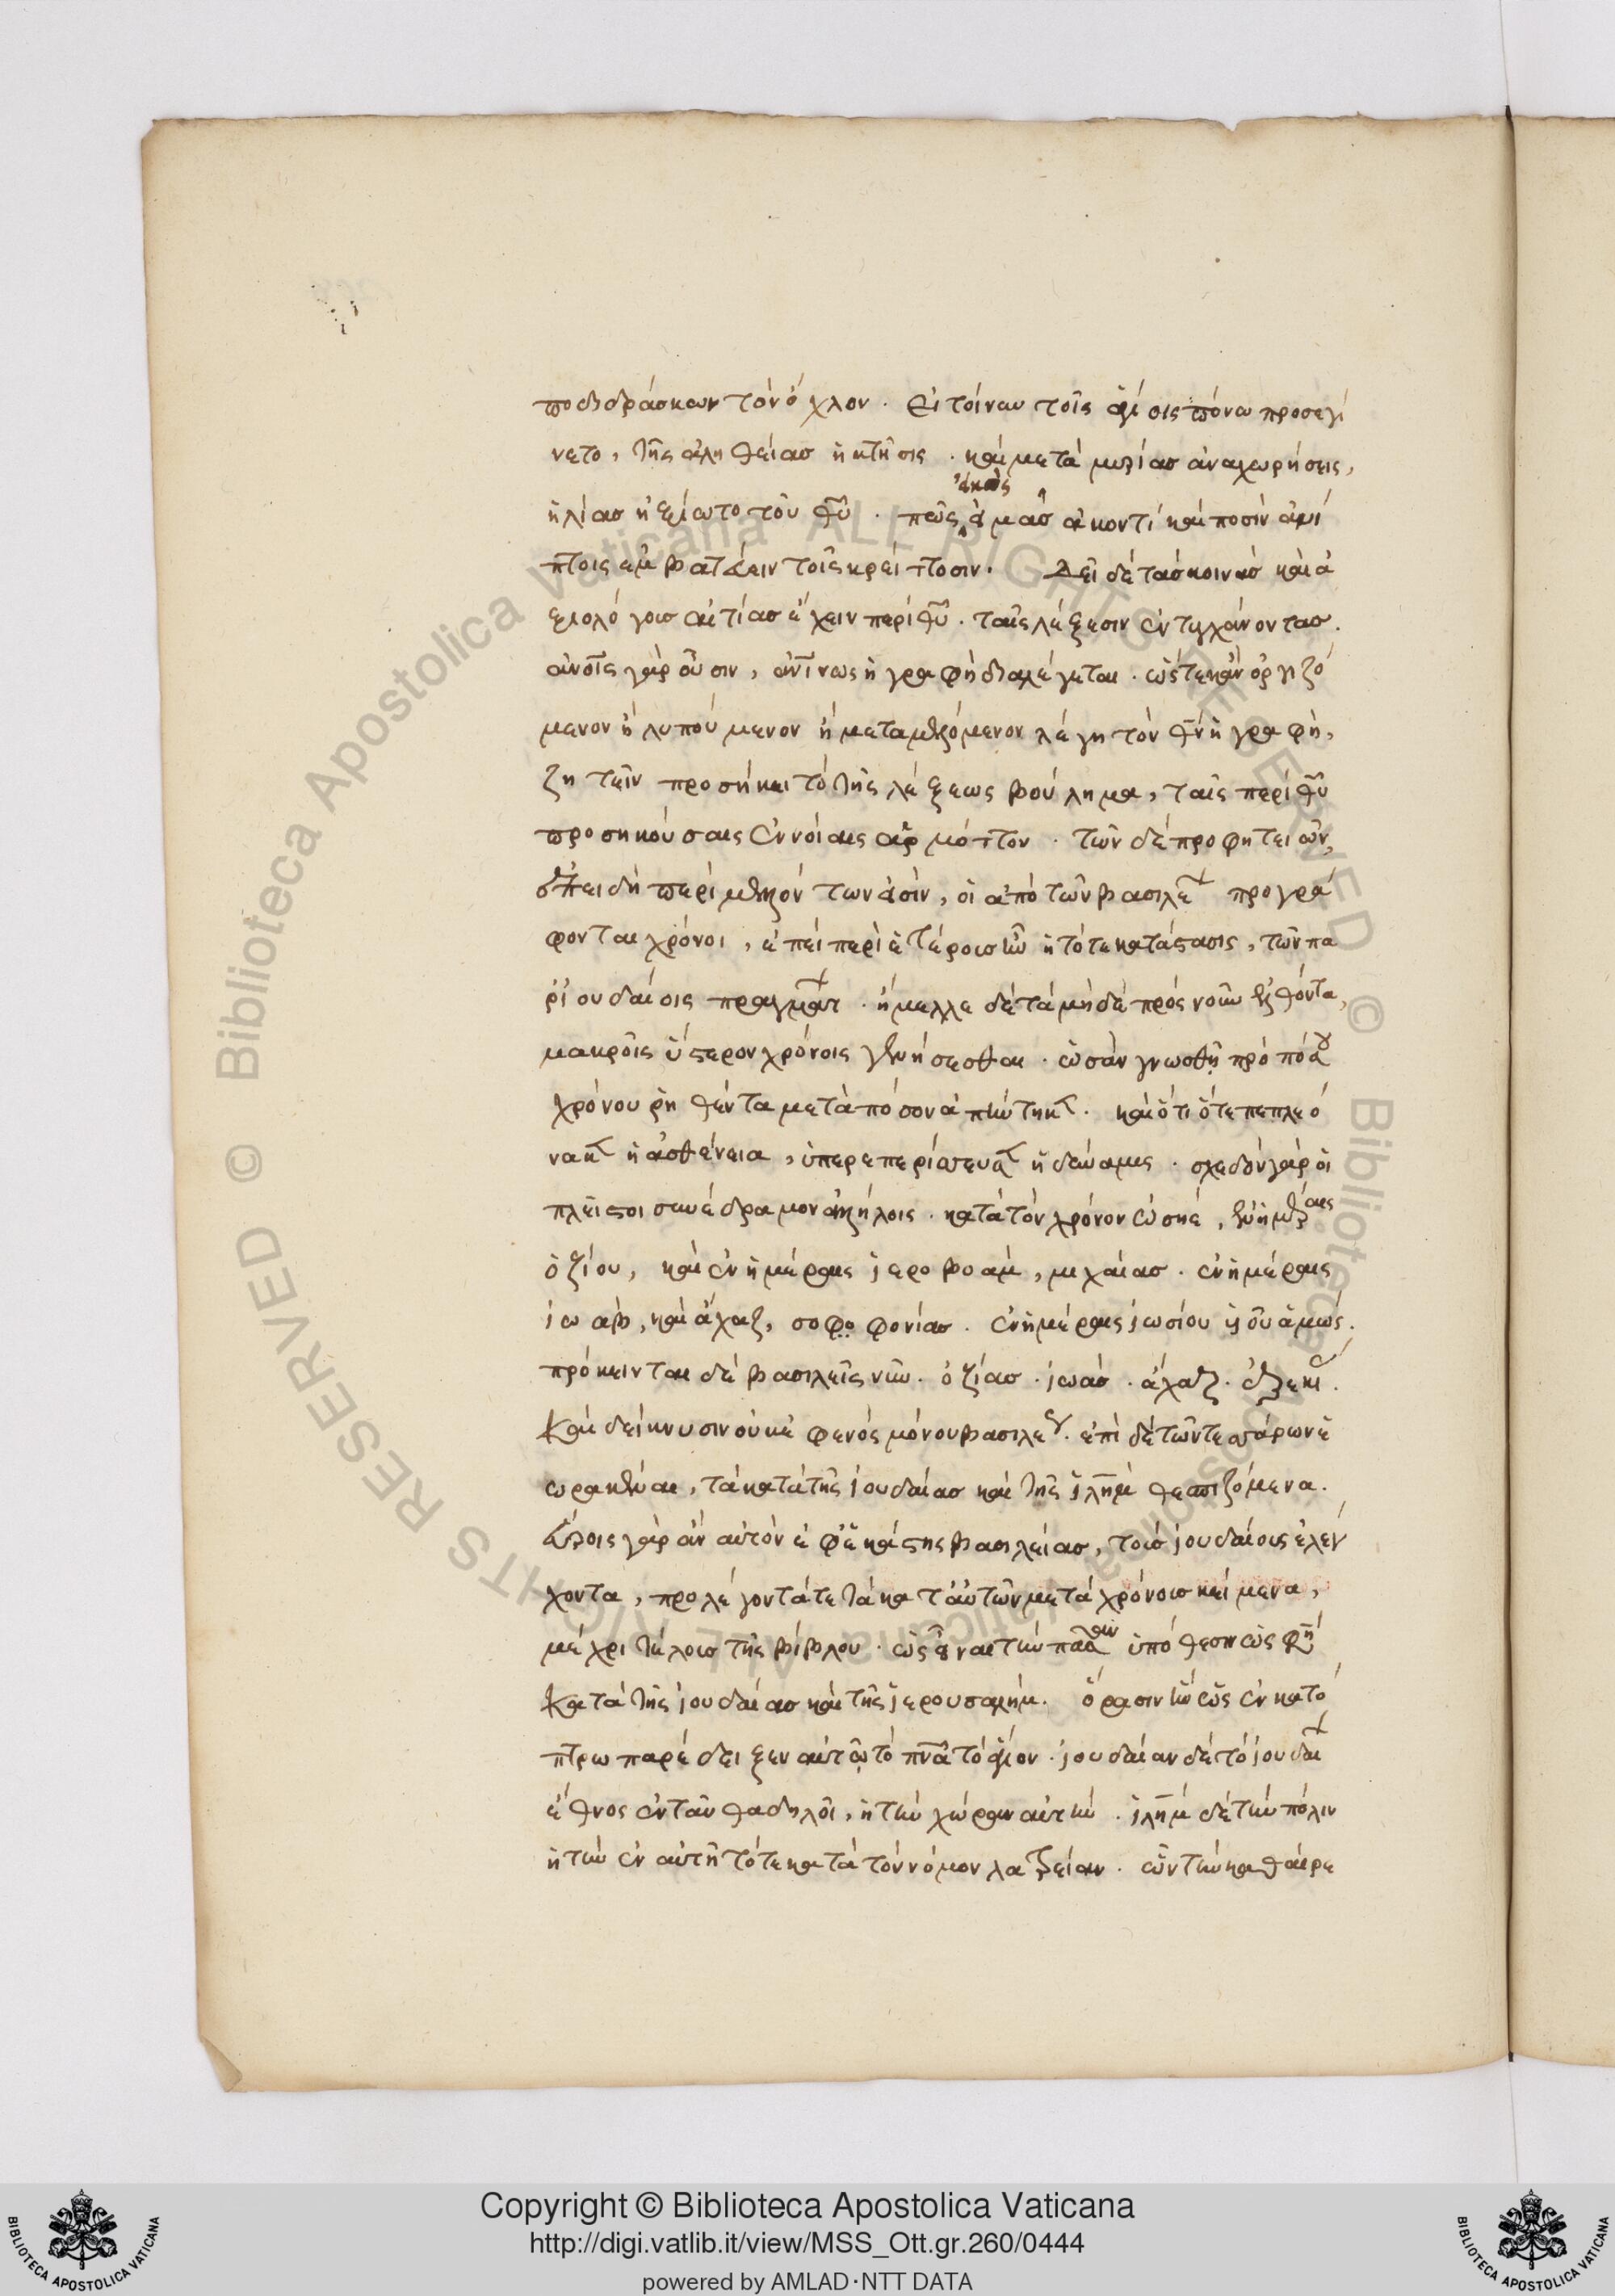 ποδιδράσκων τὸν ὄχλον. εἰ τοίνυν τοῖς ἁγίοις πόνω προσεγί
νετο, τῆς ἀληθείας ἡ κτῆσις. καὶ μετὰ μυρίας ἀναχωρήσεις,
ἠλίας ἠξίωτο τοῦ θῦ. πῶς
εἰκὸς
ἡμᾶς ἀκοντὶ καὶ ποσὶν ἀνί
πτοις ἐμβατεύειν τοῖς κρείττοσιν. Δεῖ δὲ τὰς κοινὰς καὶ ἀ
ξιολόγους αἰτίας ἔχειν περὶ θῦ. ταῖς λέξεσιν ἐντυγχάνοντας.
ἀνοῖς γὰρ οὖσιν, ἀνίνως ἡ γραφὴ διαλέγεται. ὥστε κἂν ὀργιζό
μενον ἢ λυπούμενον ἢ μεταμελόμενον λέγη τὸν θν ἡ γραφή,
ζητεῖν προσήκει τὸ τῆς λέξεως βούλημα, ταῖς περὶ θῦ
προσηκούσαις ἐννοίαις ἁρμόττον. τῶν δὲ προφητειῶν,
ἐπειδὴ περὶ μελλόντων εἰσὶν, οἱ ἀπὸ τῶν βασιλε προγρά
φονται χρόνοι, ἐπεὶ περὶ ἑτέρους ἦν ἡ τότε κατάστασις, τῶν πα
ρ' ἰουδαίοις πραγμάτ. ἤμελλε δὲ τὰ μηδὲ πρὸς νοῦν ἐλθόντα,
μακροῖς ὕστερον χρόνοις γενήσεσθαι. ὡς ἂν γνωσθῆ πρὸ πόσου
χρόνου ῥηθέντα μετὰ πόσον ἀπήντηκε. καὶ ὅτι ὅτε πεπλεό
νακε ἡ ἀσθένεια, ὑπερεπερίσσευσε ἡ δύναμις. σχεδὸν γὰρ οἱ
πλεῖστοι συνέδραμον ἀλλήλοις. κατὰ τὸν χρόνον ὠσηέ, ἐν ἡμέραις
ὀζίου, καὶ ἐν ἡμέραις ἱεροβοάμ, μιχαίας. ἐν ἡμέραις
ἰωαβ, καὶ ἄχαζ, σοφοφονίας. ἐν ἡμέραις ἰωσίου υἱοῦ ἀμώς.
πρόκεινται δὲ βασιλεῖς νῦν. ὀζίας. ἰωάς. ἄχαζ. ἐζεκί.
Καὶ δείκνυσιν οὐκ ἐφ' ἑνὸς μόνου βασιλέ. ἐπὶ δὲ τῶν τεσσάρων ἑ
ωρακέναι, τὰ κατὰ τῆς ἰουδαίας καὶ τῆς ἰλημ θεσπιζόμενα.
Εὕροις γὰρ ἂν αὐτὸν ἐφ' ἑκάστης βασιλείας, τοὺς ἰουδαίους ἐλέγ
χοντα, προλέγοντά τε τὰ κατ' αὐτῶν μετὰ χρόνους κείμενα,
μέχρι τέλους τῆς βίβλου. ὡς εἶναι τὴν πᾶσαν ὑπόθεσιν ὡς φη
Κατὰ τῆς ἰουδαίας καὶ τῆς ἱερουσαλήμ. ὅρασιν ἣν ὡς ἐν κατό
πτρω παρέδειξεν αὐτῶ τὸ πνᾶ τὸ ἅγιον. ἰουδαίαν δὲ τὸ ἰουδαί
ἔθνος ἐνταῦθα δηλοῖ, ἢ τὴν χώραν αὐτήν. ἰλὴμ δὲ τὴν πόλιν
ἢ τὴν ἐν αὐτῆ τότε κατὰ τὸν νόμον λατρείαν. ὧν τὴν καθαίρε
Copyright © Biblioteca Apostolica Vaticana
http://digi.vatlib.it/view/MSS_Ott.gr.260/0444
powered by AMLAD·NTT DATA